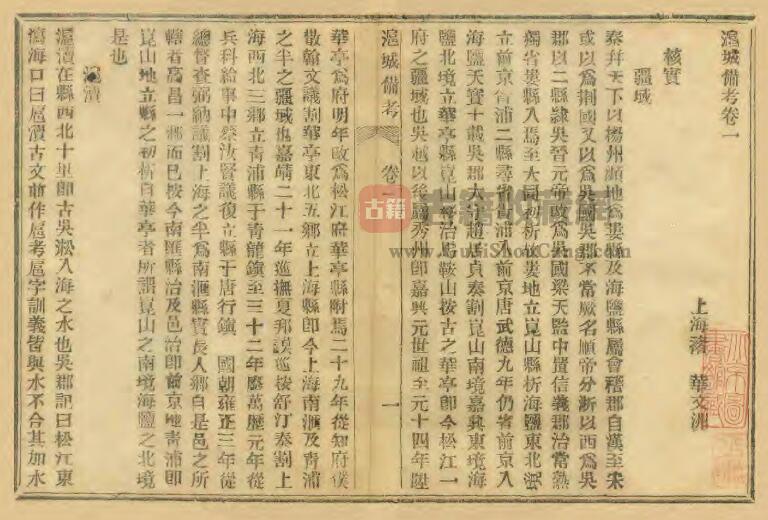 滬城備考卷一
上海褚 華文洲
核實
疆域
秦幷天下以揚州瀕地爲婁縣及海鹽縣屬會稽郡自漢至朱
或以爲荆國又以爲吳國吳郡不常厥名順帝分浙以西爲吳
郡以二縣隷吳晉元帝改爲吳國梁天監中置信義郡治常熟
獨省婁縣入焉至大同初析故婁地立崑山縣析海鹽東北
立前京 浦二縣尋省 浦入前京唐武德九年仍省前京入
海鹽天寶十載吳郡太 趙居貞奏割崑山南境嘉興東境海
鹽北境立華亭縣崑山 治馬鞍山按古之華亭卽今松江一
府之疆域也吳越以後 秀州卽嘉興元世祖至元十四年陞
滬城備考 卷一 一
華亭爲府明年改爲松江府華亭縣附焉二十九年從知府僕
散翰文議割華亭東北五鄉立上海縣卽今上海南滙及青浦
之半之疆域也嘉靖二十一年巡撫夏邦謨巡按舒汀奏割上
海西北三鄉立青浦縣于青龍鎭至三十二年廢萬歷元年從
兵科給事中蔡汝賢議復立縣于唐行鎭 國朝雍正三年從
總督查弼納議割上海之半爲南滙縣實長人鄉自是邑之所
轄者高昌一鄉而已按今南匯縣治及邑治卽前京地青浦卽
崑山地立縣之初析自華亭者所謂崑山之南境海鹽之北境
是也
滬瀆
滬瀆在縣西北十里卽古吳淞入海之水也吳郡記曰松江東
瀉海口曰扈瀆古文前作扈考扈字訓義皆與水不合其加水
古籍
www.GuJiShouCang.com